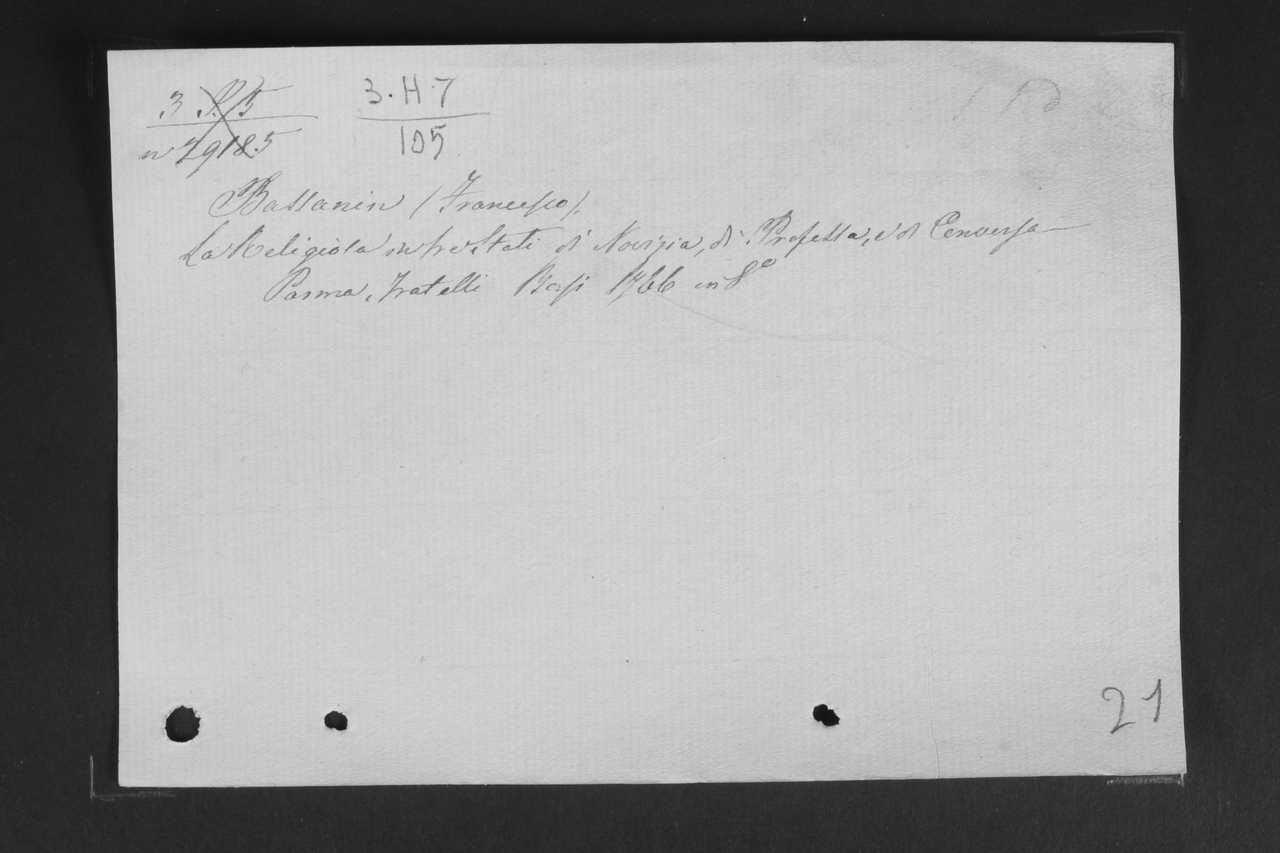 3 S. 15 3.H.7
n° 29185 105
Bassanin (Francesco).
La Religiosa in tre Stati di Novizia, di Professa, e di Conversa
Parma, Fratelli Borsi 1766 in 8°
21